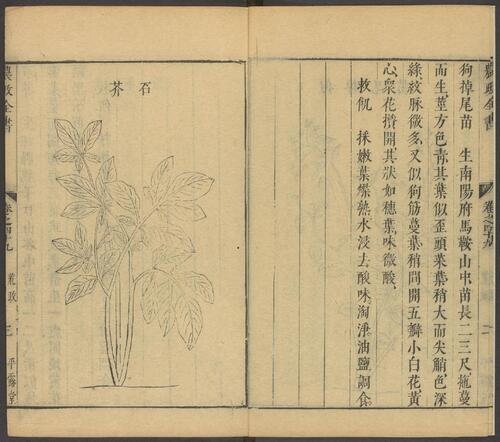 農政全書
狗掉尾苗 生南陽府馬鞍山中苗長二三尺拖蔓
而生莖方色青其葉似歪頭菜葉稍大而尖艄色深
綠紋脉微多又似狗筋蔓葉稍間開五瓣小白花黃
心衆花攢開其狀如穗葉味微酸
救飢 採嫩葉煠熟水浸去酸味淘淨油鹽調食
卷之四十九
二
石芥
農政全書
卷之四十九
荒政
三
平露堂